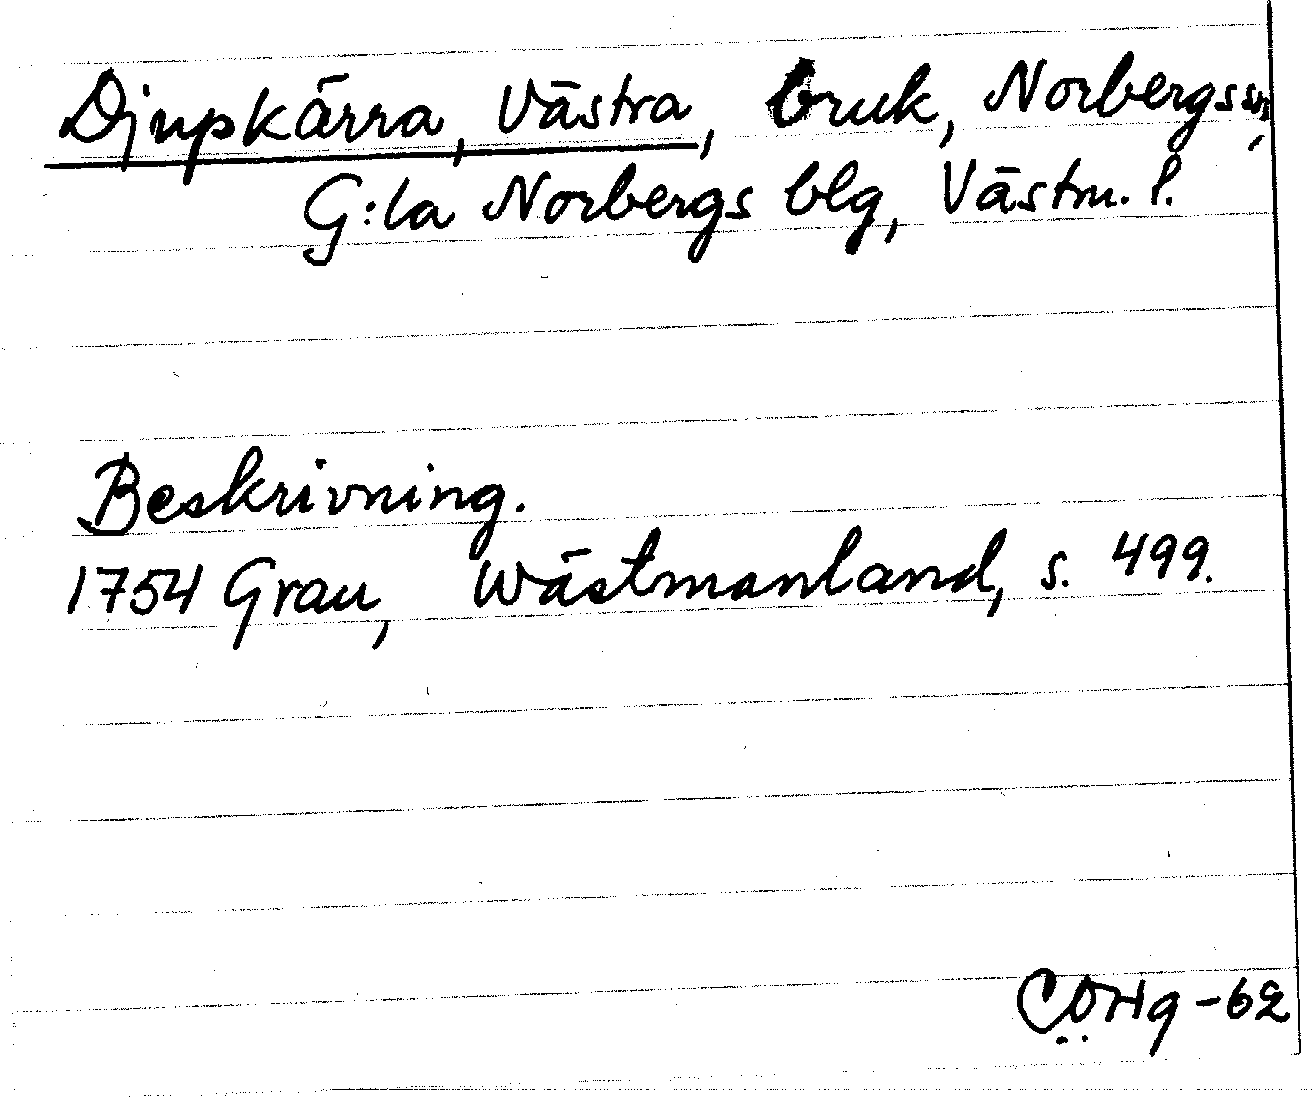 Djupkärra, Västra, bruk, Norbergs sn,
G:la Norbergs blg, Västm. l.
Beskrivning.
1754 Grau, Wästmanland, s. 499.
CÖHg -62